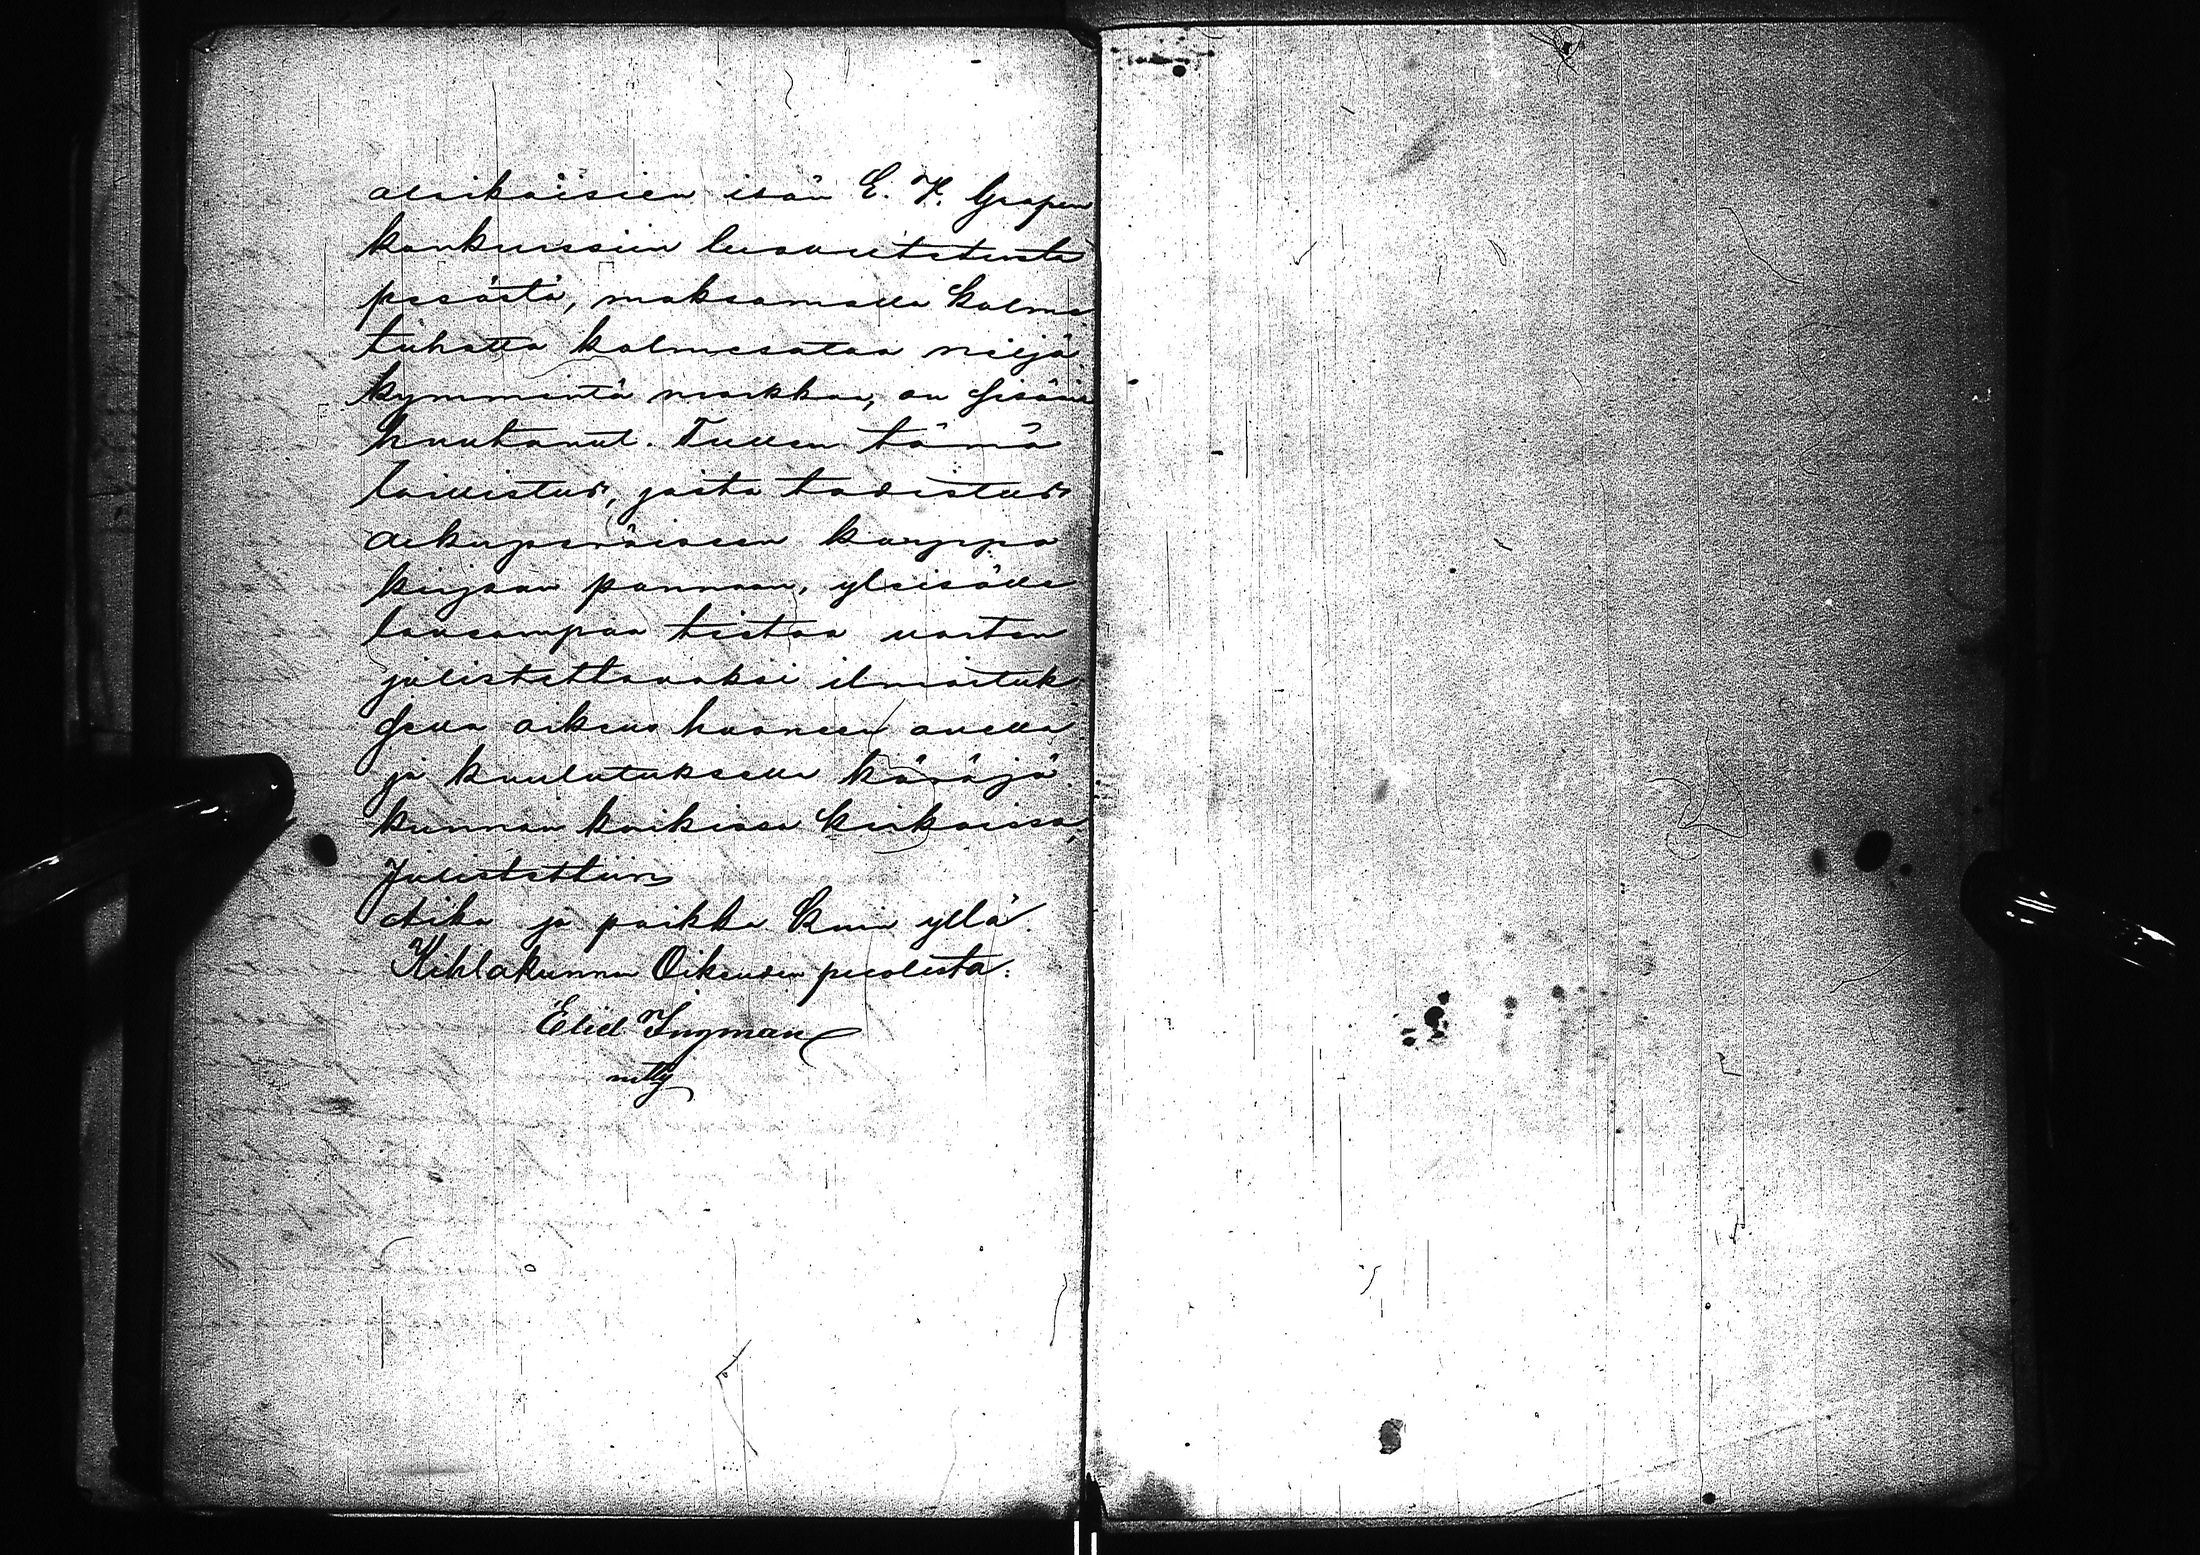 alaikäisien isän E. K. Grapen
konkurssiin luovutetusta
pesästä, maksamalla kolme
tuhatta kolmesataa neljä
kymmentä markkaa, on sisään
huutanut. Tulleen tämä
laillistus, josta todistus
alkuperäiseen kauppa
kirjaan pannaan, ylisisälle
laveampaa tietoa varten
julistettavaksi ilmoituk
sella oikeus huoneen ovella
ja kuulutuksella käräjä
kunnan kaikissa kirkoissa,
Julistettiin
Aika ja paikka kuin yllä.
Kihlakunnan Oikeuden puolesta:
Elid Ingman